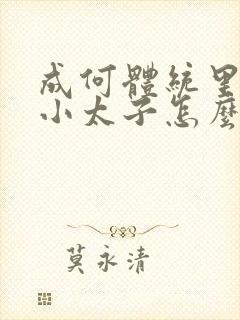 成何體統里
小太子怎麼
莫永清